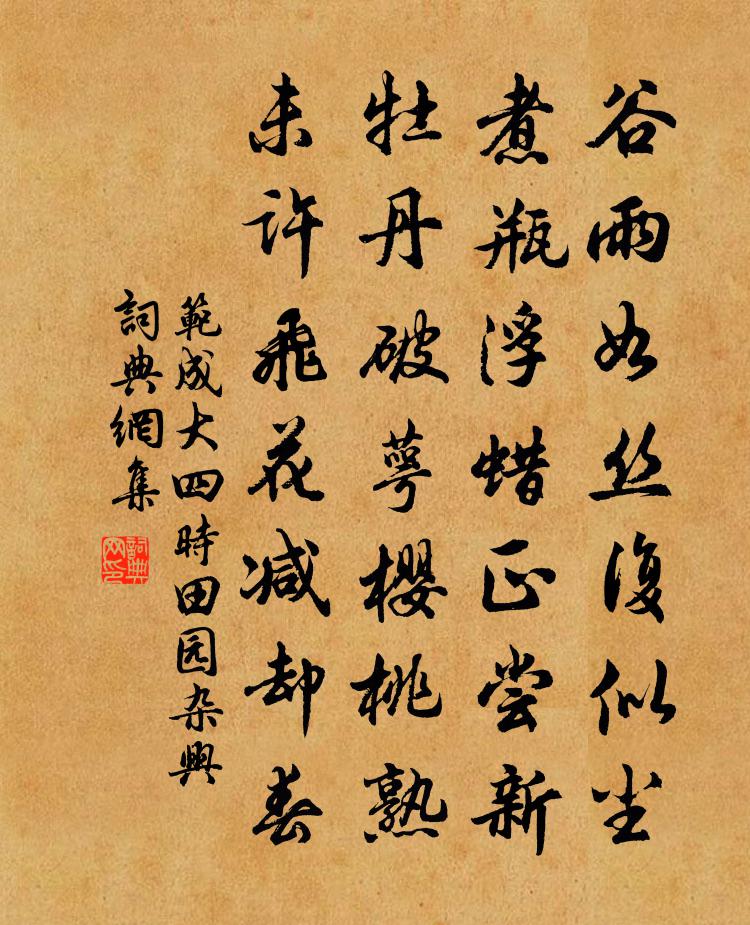 谷雨如丝復似尘
煮瓶浮蜡正尝新
牡丹破萼櫻桃熟
未许飛花减却春
範成大四時田园杂興
詞典網集
詞典网印